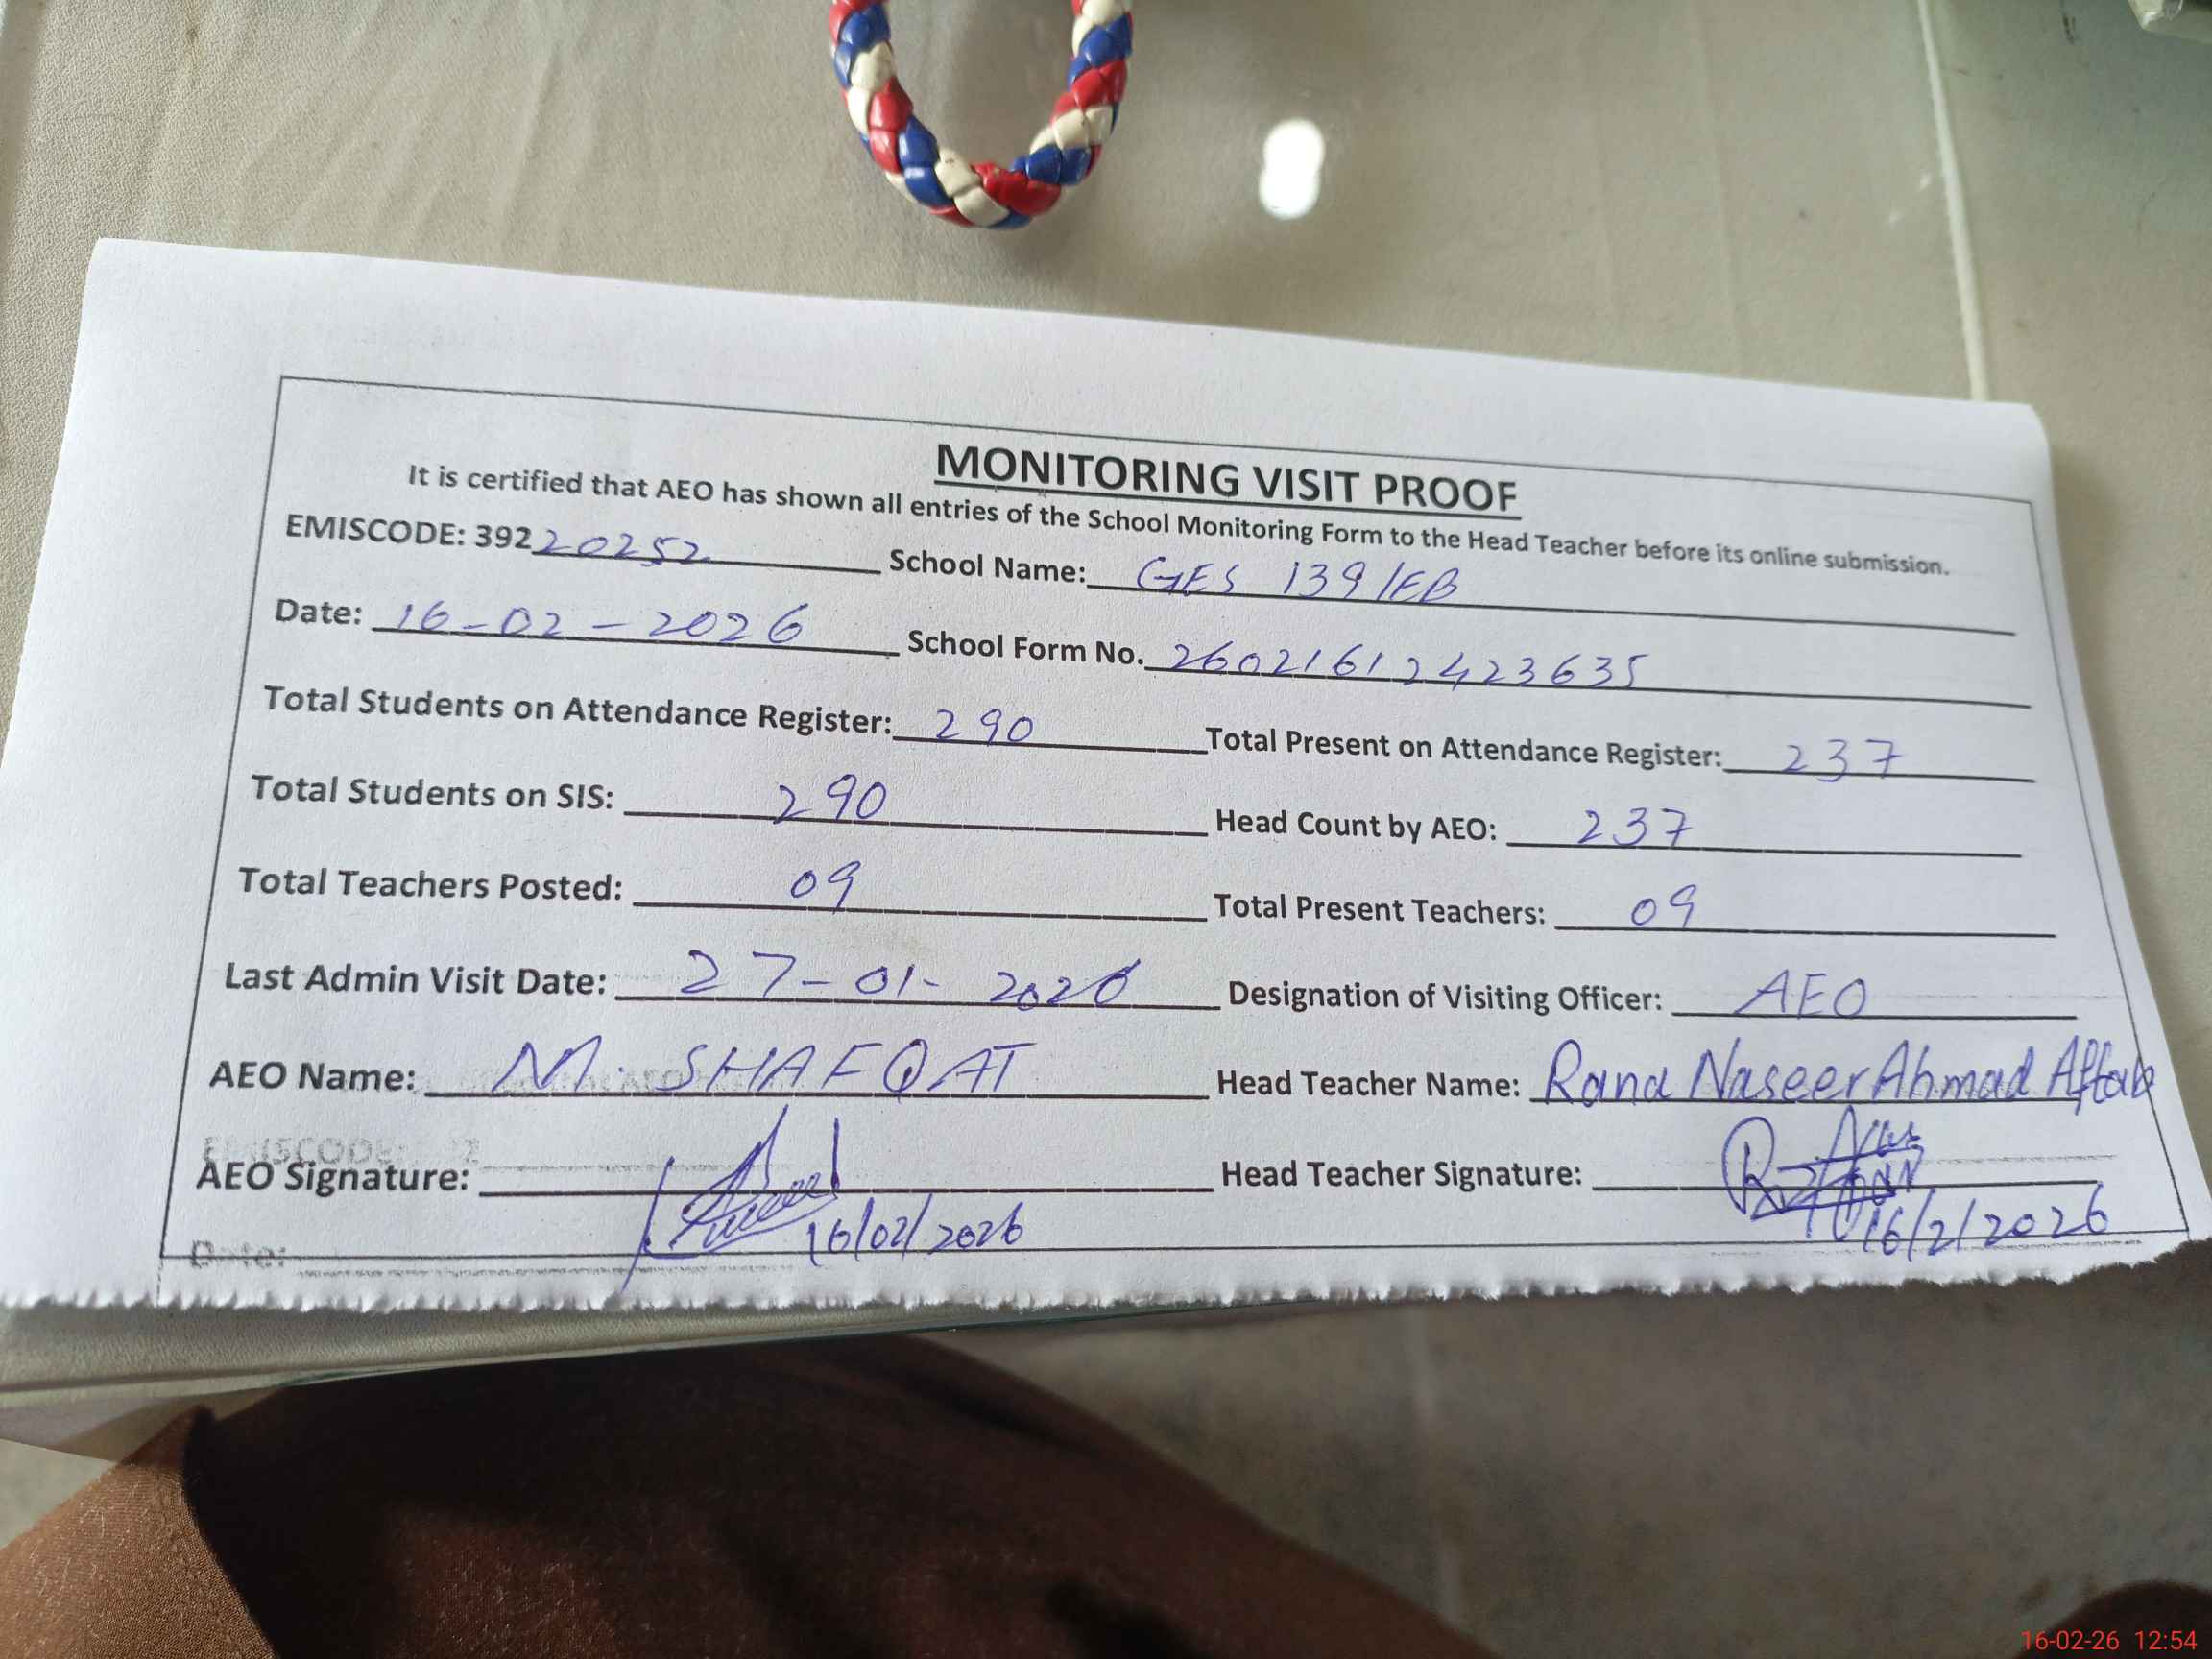 MONITORING VISIT PROOF
It is certified that AEO has shown all entries of the School Monitoring Form to the Head Teacher before its online submission.
EMISCODE: 39220252 School Name: GES 139/EB
Date: 16-02-2026 School Form No. 26021612423635
Total Students on Attendance Register: 290 Total Present on Attendance Register: 237
Total Students on SIS: 290 Head Count by AEO: 237
Total Teachers Posted: 09 Total Present Teachers: 09
Last Admin Visit Date: 27-01-2026 Designation of Visiting Officer: AEO
AEO Name: M. SHAFQAT Head Teacher Name: Rana Naseer Ahmad Aftab
EMISCODE:
AEO Signature: 16/02/2026 Head Teacher Signature: 16/2/2026
Date:
16-02-26 12:54